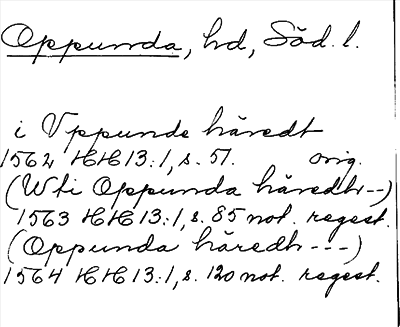 Oppunda, hd, Söd. l.
i Vppunde häredt
1562 HH 13:1, s. 57. orig.
(Wti Oppunda häredh--)
1563 HH 13:1, s. 85 not. regest.
(Oppunda häredh---)
1564 HH 13:1, s. 120 not. regest.